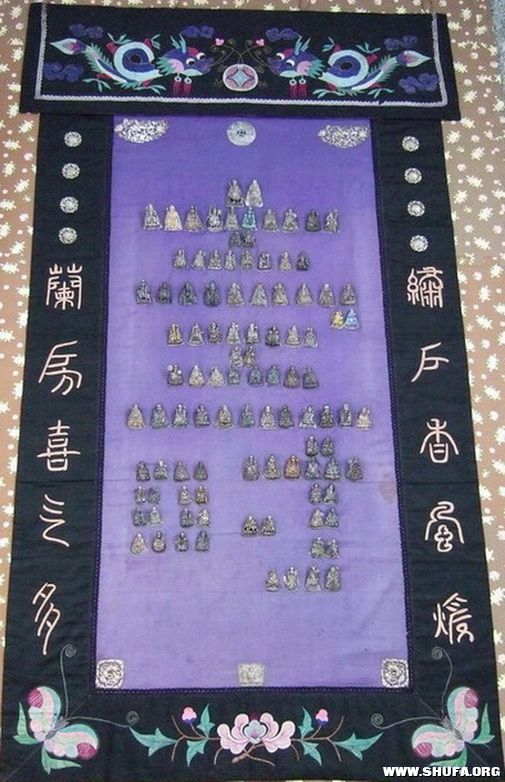 繡戶香風煖
蘭房喜气多
WWW.SHUFA.ORG